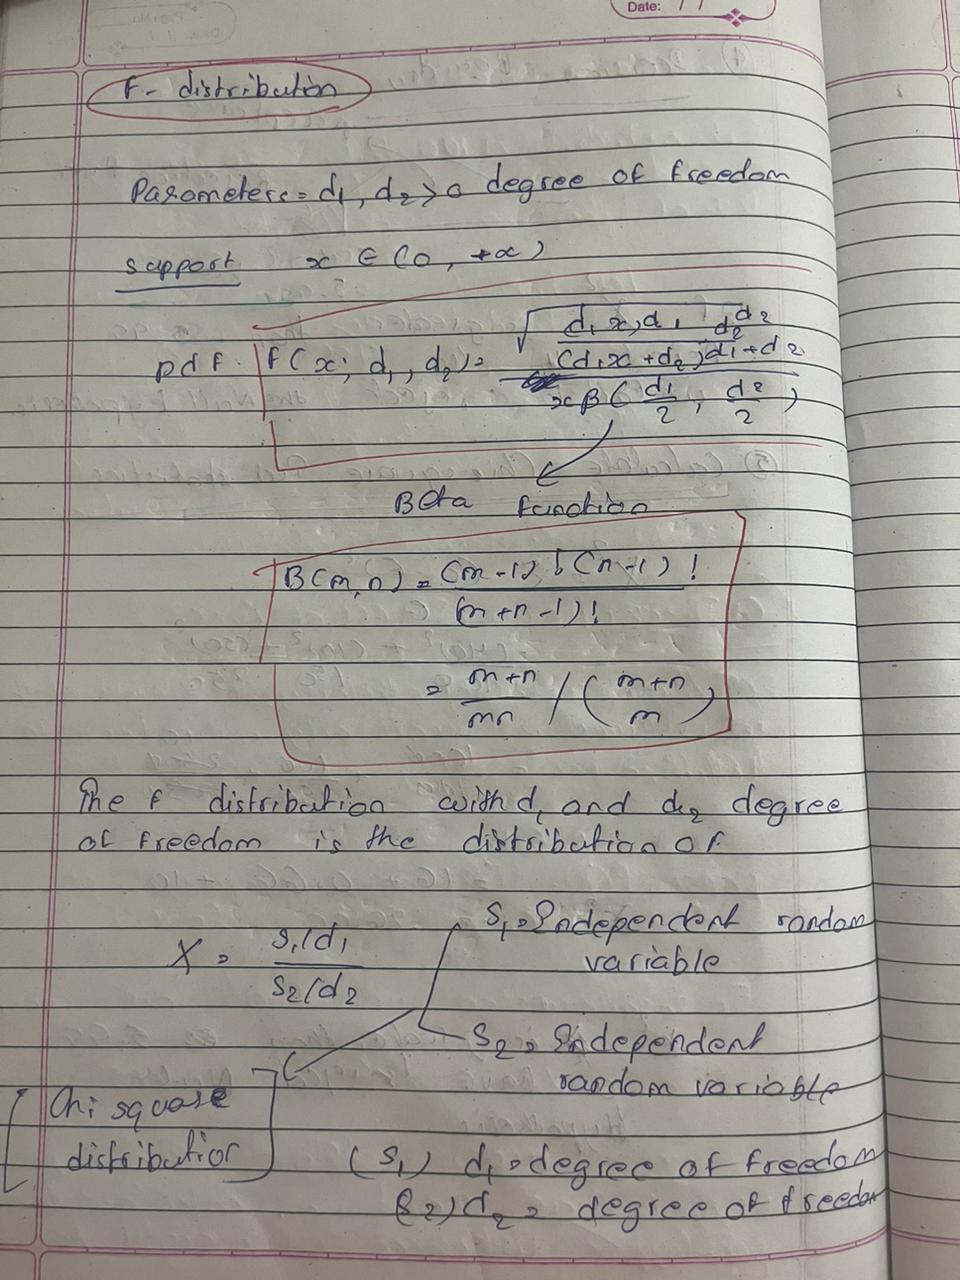 Date: / /
F- distribution
Parameters = d1, d2 > 0 degree of freedom
support x ∈ (0, +∝)
pdf. f(x; d1, d2) = √ d1x, d1 d2^d2 / (d1x + d2)d1+d2
xB(d1/2, d2/2)
Beta function
B(m,n) = (m-1)!(n-1)! / (m+n-1)!
= m+n / mn / (m+n m)
The F distribution with d1 and d2 degree
of freedom is the distribution of
X = S1/d1 / S2/d2
S1 = Independent random
variable
S2 = Independent
random variable
Chi square
distribution
(S1) d1 = degree of freedom
(S2) d2 = degree of freedom